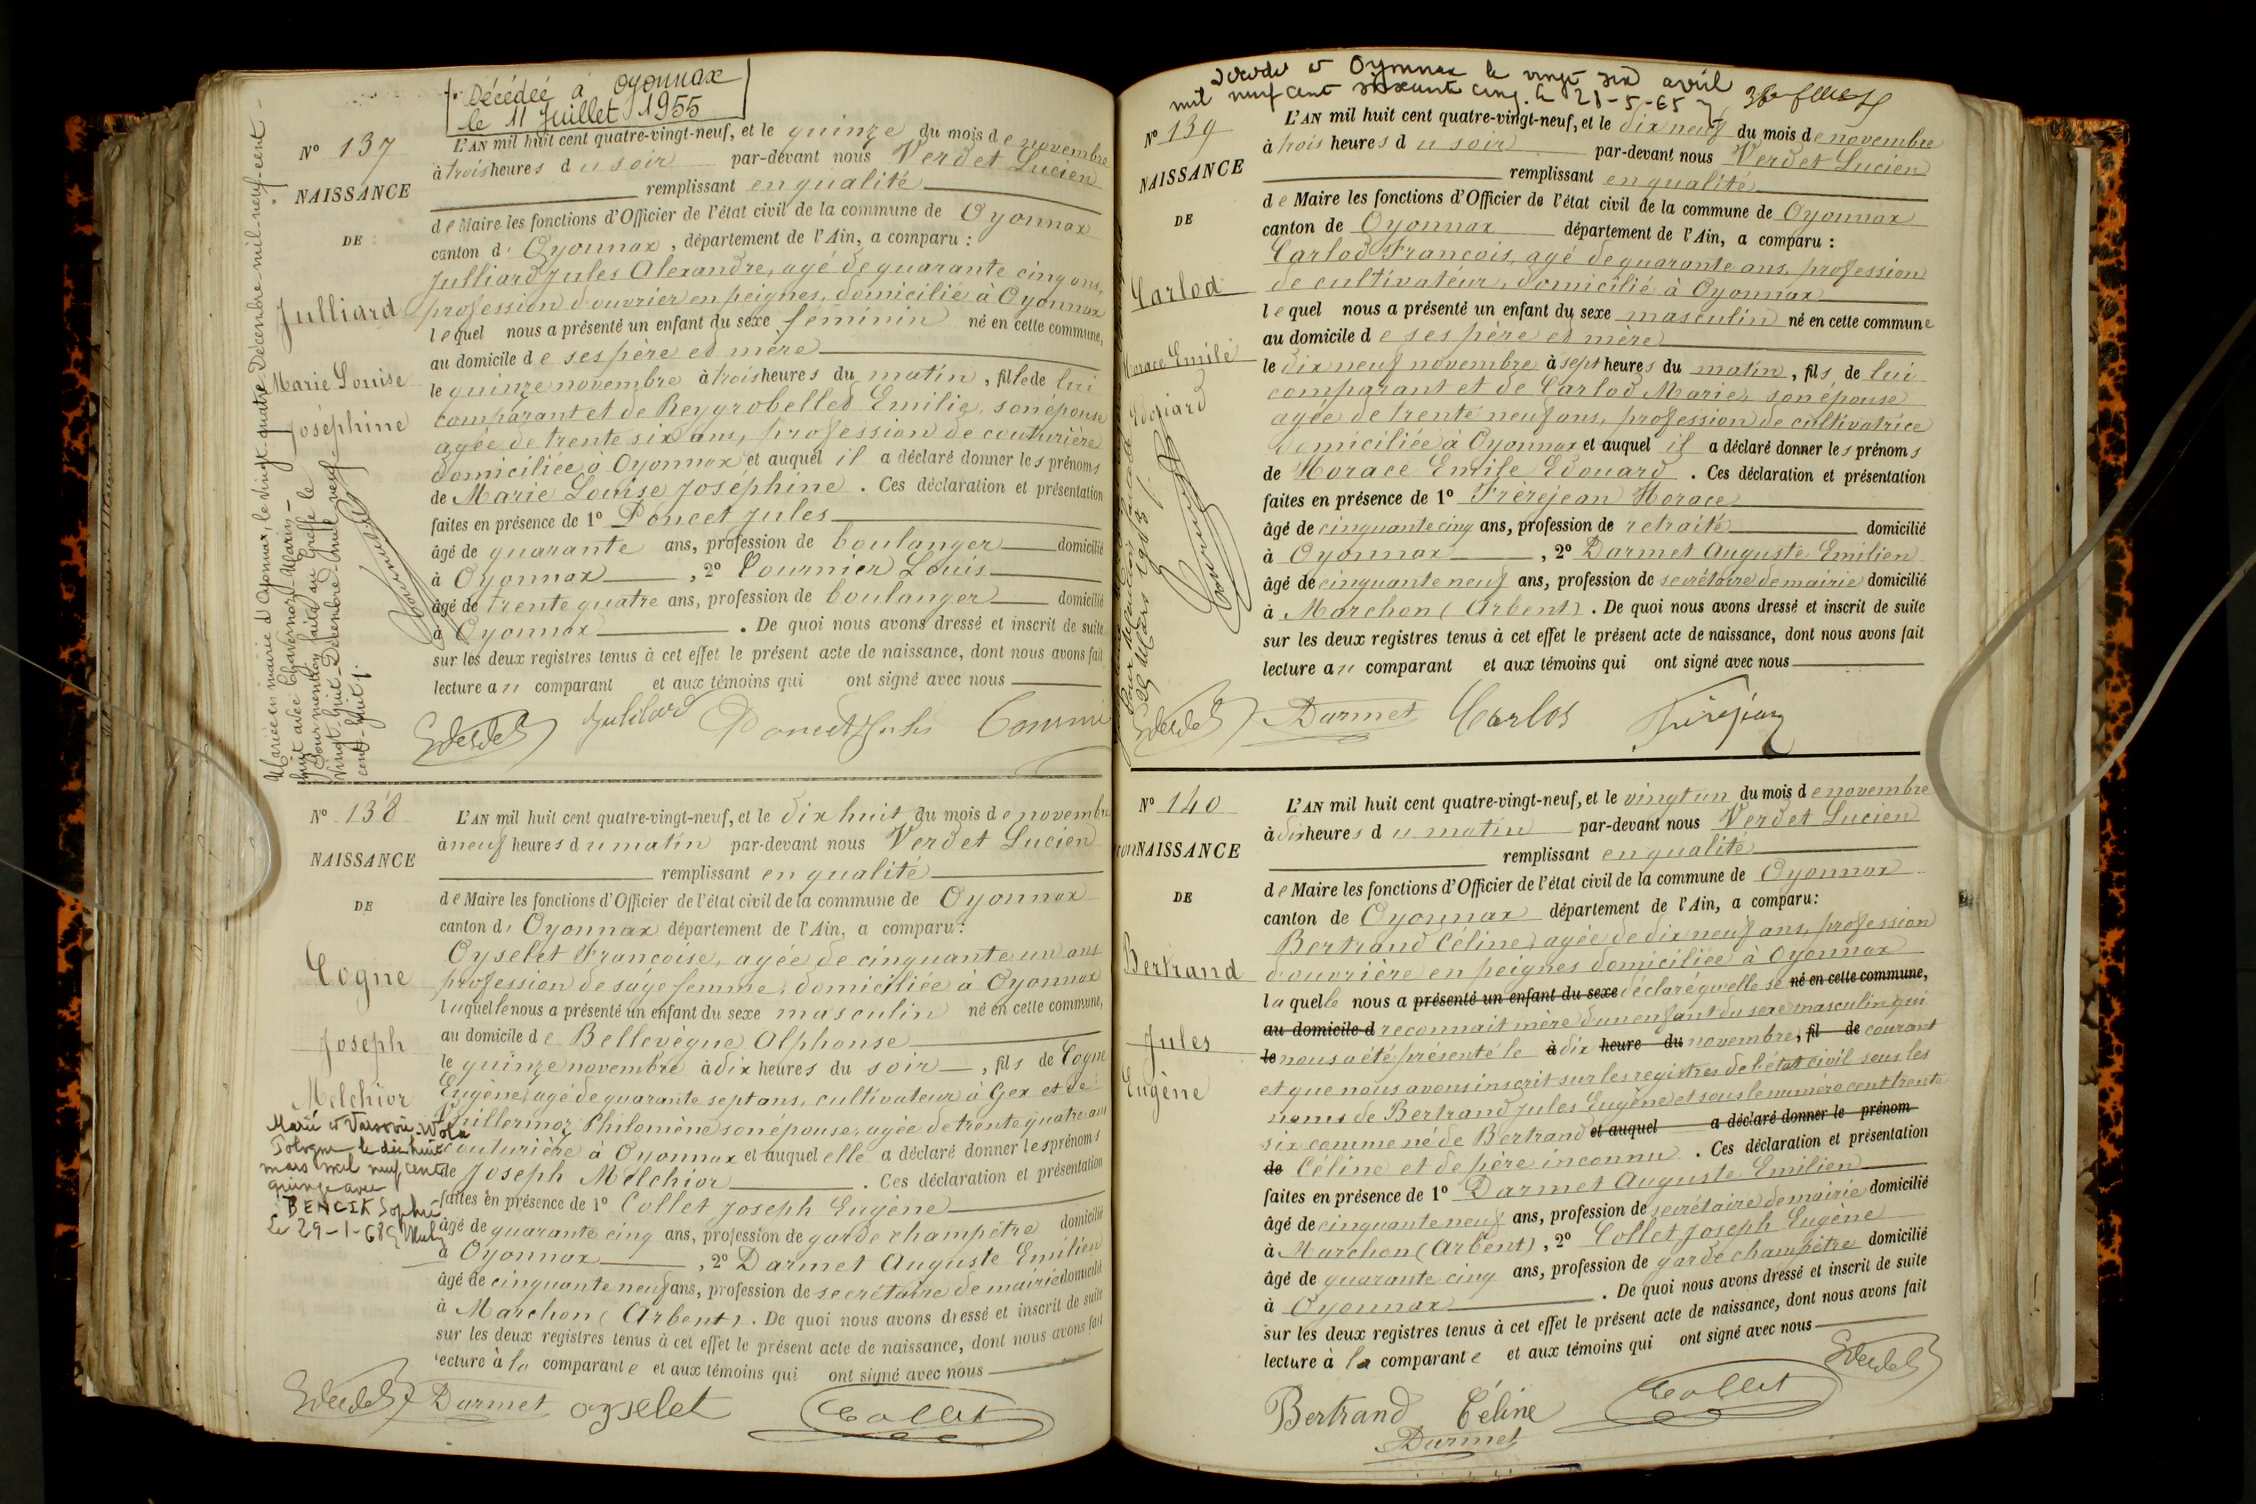 Décédée à Oyonnax
le 11 Juillet 1955
N° 137
NAISSANCE
DE
Julliard
Marie Louise
Joséphine
Mariée en mairie d'Oyonnax, le vingt-quatre Décembre mil-neuf-cent-
huit avec Chavernoz Marin-
Pour mention faite au Greffe le
Vingt-huit Décembre mil neuf
cent-huit.
L'AN mil huit cent quatre-vingt-neuf, et le quinze du mois de novembre
à trois heures du soir par-devant nous Verdet Lucien
remplissant en qualité
de Maire les fonctions d'Officier de l'état civil de la commune de Oyonnax
canton d' Oyonnax, département de l'Ain, a comparu :
Julliard Jules Alexandre, agé de quarante cinq ans,
profession d'ouvrier en peignes, domicilié à Oyonnax
lequel nous a présenté un enfant du sexe féminin né en cette commune,
au domicile de ses père et mère
le quinze novembre à trois heures du matin, fille de lui
comparant et de Reygrobellet Emilie, son épouse
agée de trente six ans, profession de couturière
domiciliée à Oyonnax et auquel il a déclaré donner les prénoms
de Marie Louise Joséphine. Ces déclaration et présentation
faites en présence de 1° Poncet Jules
âgé de quarante ans, profession de boulanger domicilié
à Oyonnax, 2° Cournier Louis
âgé de trente quatre ans, profession de boulanger domicilié
à Oyonnax. De quoi nous avons dressé et inscrit de suite
sur les deux registres tenus à cet effet le présent acte de naissance, dont nous avons fait
lecture au comparant et aux témoins qui ont signé avec nous
Verdet Julliard Poncet Jules
N° 138
NAISSANCE
DE
Cogne
Joseph
Melchior
Marié à Varsovie-Wola
Pologne le dix huit
mars mil neuf cent
quinze avec
BENCIK Sophie
Le 29-1-68
L'AN mil huit cent quatre-vingt-neuf, et le dix huit du mois de novembre
à neuf heures du matin par-devant nous Verdet Lucien
remplissant en qualité
de Maire les fonctions d'Officier de l'état civil de la commune de Oyonnax
canton d' Oyonnax département de l'Ain, a comparu :
Oyselet Françoise, agée de cinquante un ans
profession de sage femme, domiciliée à Oyonnax
laquelle nous a présenté un enfant du sexe masculin né en cette commune,
au domicile de Bellevègue Alphonse
le quinze novembre à dix heures du soir, fils de Cogne
Eugène, agé de quarante sept ans, cultivateur à Gex et de
Vuillermoz Philomène son épouse, agée de trente quatre ans
couturière à Oyonnax et auquel elle a déclaré donner les prénoms
de Joseph Melchior. Ces déclaration et présentation
faites en présence de 1° Collet Joseph Eugène
âgé de quarante cinq ans, profession de garde champêtre domicilié
à Oyonnax, 2° Darmet Auguste Emilien
âgé de cinquante neuf ans, profession de secrétaire de mairie domicilié
à Marchon (Arbent). De quoi nous avons dressé et inscrit de suite
sur les deux registres tenus à cet effet le présent acte de naissance, dont nous avons fait
lecture à la comparante et aux témoins qui ont signé avec nous
Verdet Darmet oyselet Collet
décédé à Oyonnax le vingt six avril
mil neuf cent soixante cinq. Le 21-5-65
N° 139
NAISSANCE
DE
Carlod
Horace Emile
Edouard
L'AN mil huit cent quatre-vingt-neuf, et le dix neuf du mois de novembre
à trois heures du soir par-devant nous Verdet Lucien
remplissant en qualité
de Maire les fonctions d'Officier de l'état civil de la commune de Oyonnax
canton de Oyonnax département de l'Ain, a comparu :
Carlod François, agé de quarante ans, profession
de cultivateur, domicilié à Oyonnax
lequel nous a présenté un enfant du sexe masculin né en cette commune
au domicile de ses père et mère
le dix neuf novembre à sept heures du matin, fils de lui
comparant et de Carlod Marie, son épouse
agée de trente neuf ans, profession de cultivatrice
domiciliée à Oyonnax et auquel il a déclaré donner les prénoms
de Horace Emile Edouard. Ces déclaration et présentation
faites en présence de 1° Frèrejean Horace
âgé de cinquante cinq ans, profession de retraité domicilié
à Oyonnax, 2° Darmet Auguste Emilien
âgé de cinquante neuf ans, profession de secrétaire de mairie domicilié
à Marchon (Arbent). De quoi nous avons dressé et inscrit de suite
sur les deux registres tenus à cet effet le présent acte de naissance, dont nous avons fait
lecture au comparant et aux témoins qui ont signé avec nous
Verdet Darmet Carlod Frèrejean
N° 140
NAISSANCE
DE
Bertrand
Jules
Eugène
L'AN mil huit cent quatre-vingt-neuf, et le vingt un du mois de novembre
à dix heures du matin par-devant nous Verdet Lucien
remplissant en qualité
de Maire les fonctions d'Officier de l'état civil de la commune de Oyonnax
canton de Oyonnax département de l'Ain, a comparu :
Bertrand Céline, agée de dix neuf ans, profession
d'ouvrière en peignes domiciliée à Oyonnax
laquelle nous a présenté un enfant du sexe déclaré qu'elle se né en cette commune,
au domicile d reconnait mère d'un enfant du sexe masculin qui
le nous a été présenté le à dix heure du novembre, fil de courant
et que nous avons inscrit sur les registres de l'état civil sous les
noms de Bertrand Jules Eugène et sous le numéro cent trente
six comme né de Bertrand et auquel a déclaré donner le prénom
de Céline et de père inconnu. Ces déclaration et présentation
faites en présence de 1° Darmet Auguste Emilien
âgé de cinquante neuf ans, profession de secrétaire de mairie domicilié
à Marchon (Arbent), 2° Collet Joseph Eugène
âgé de quarante cinq ans, profession de garde champêtre domicilié
à Oyonnax. De quoi nous avons dressé et inscrit de suite
sur les deux registres tenus à cet effet le présent acte de naissance, dont nous avons fait
lecture à la comparante et aux témoins qui ont signé avec nous
Verdet
Bertrand Céline Collet
Darmet